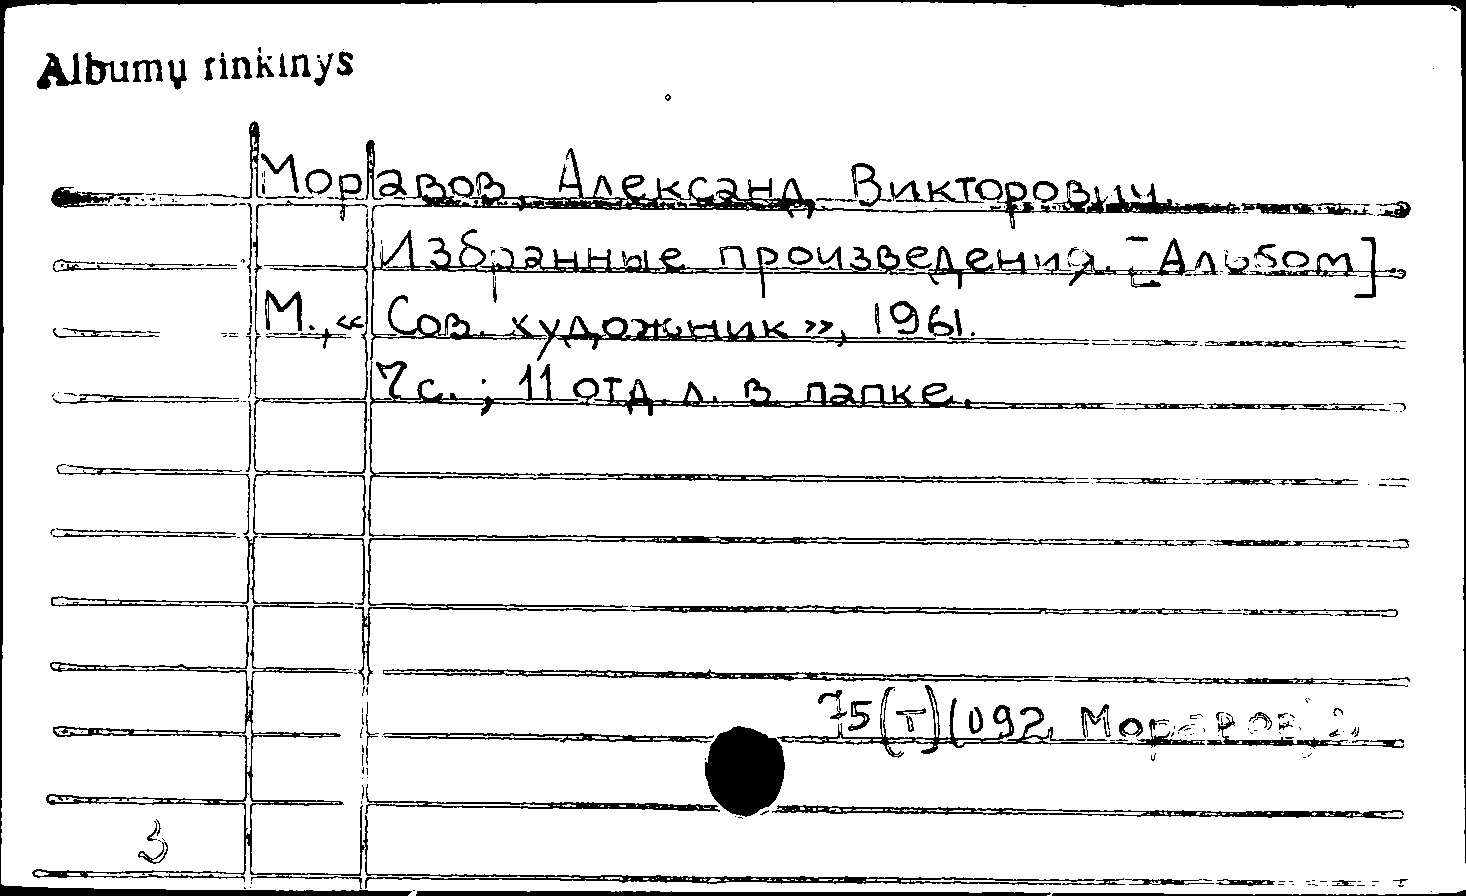 Albumų rinkinys
Моравов, Александ Викторович.
Избранные произведения. [Альбом]
М., « Сов. художник », 1961.
7 с. ; 11 отд. л. в папке.
75(Т)(092 Моравов)
3